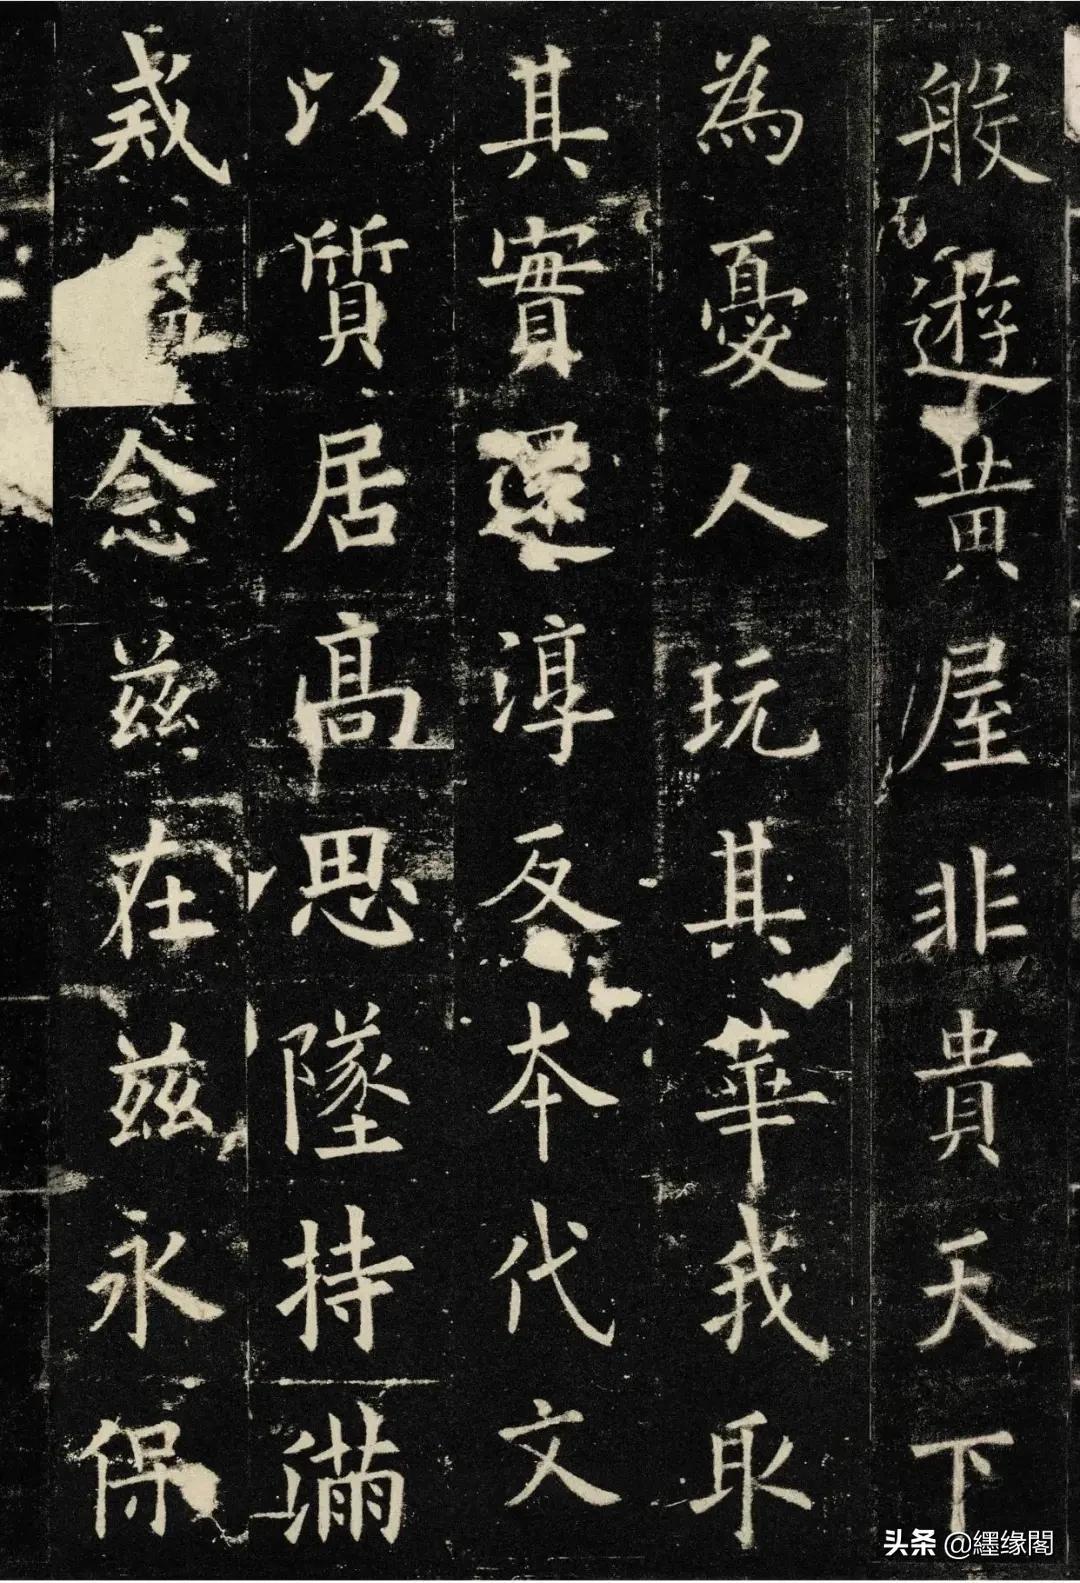 般遊黄屋非貴天下
為憂人玩其華我取
其實還淳反本代文
以質居高思墜持滿
戒念兹在兹永保
头条 @纆缘閣